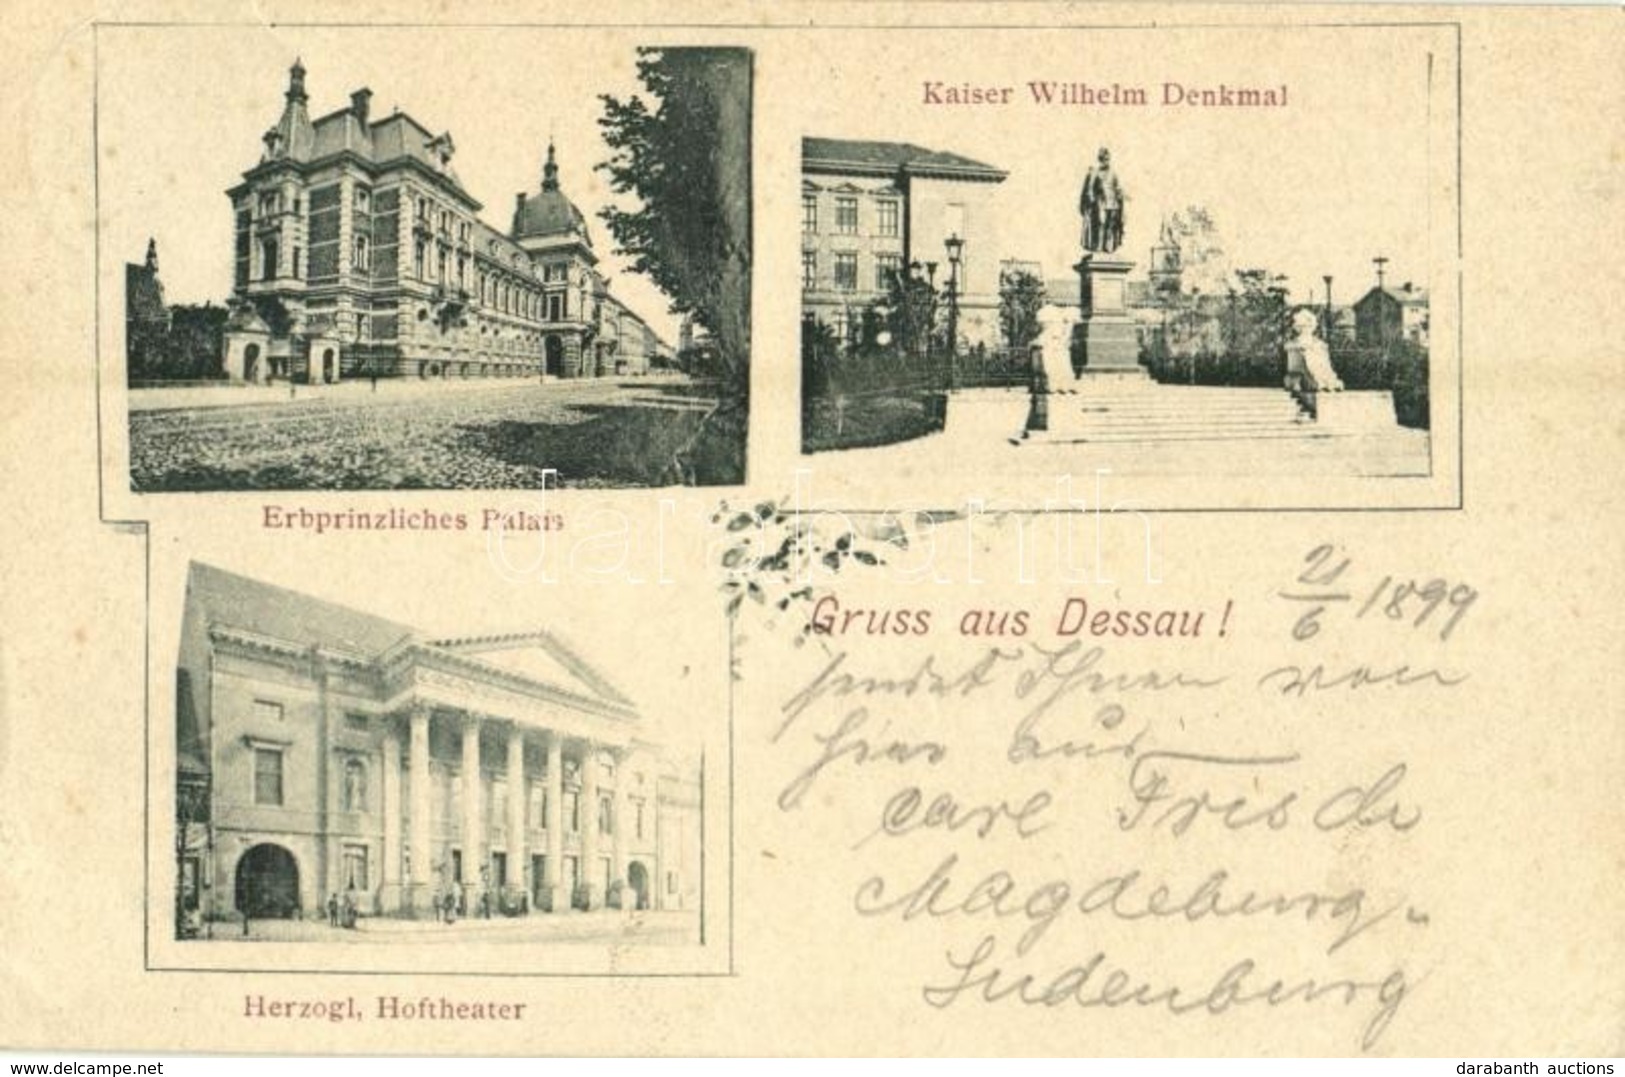 Kaiser Wilhelm Denkmal
Erbprinzliches Palais
Herzogl, Hoftheater
Gruss aus Dessau!
21/6 1899
sendet Ihnen von
hier aus
Carl
Magdeburg-
Sudenburg
darabanth
www.delcampe.net
darabanth auctions